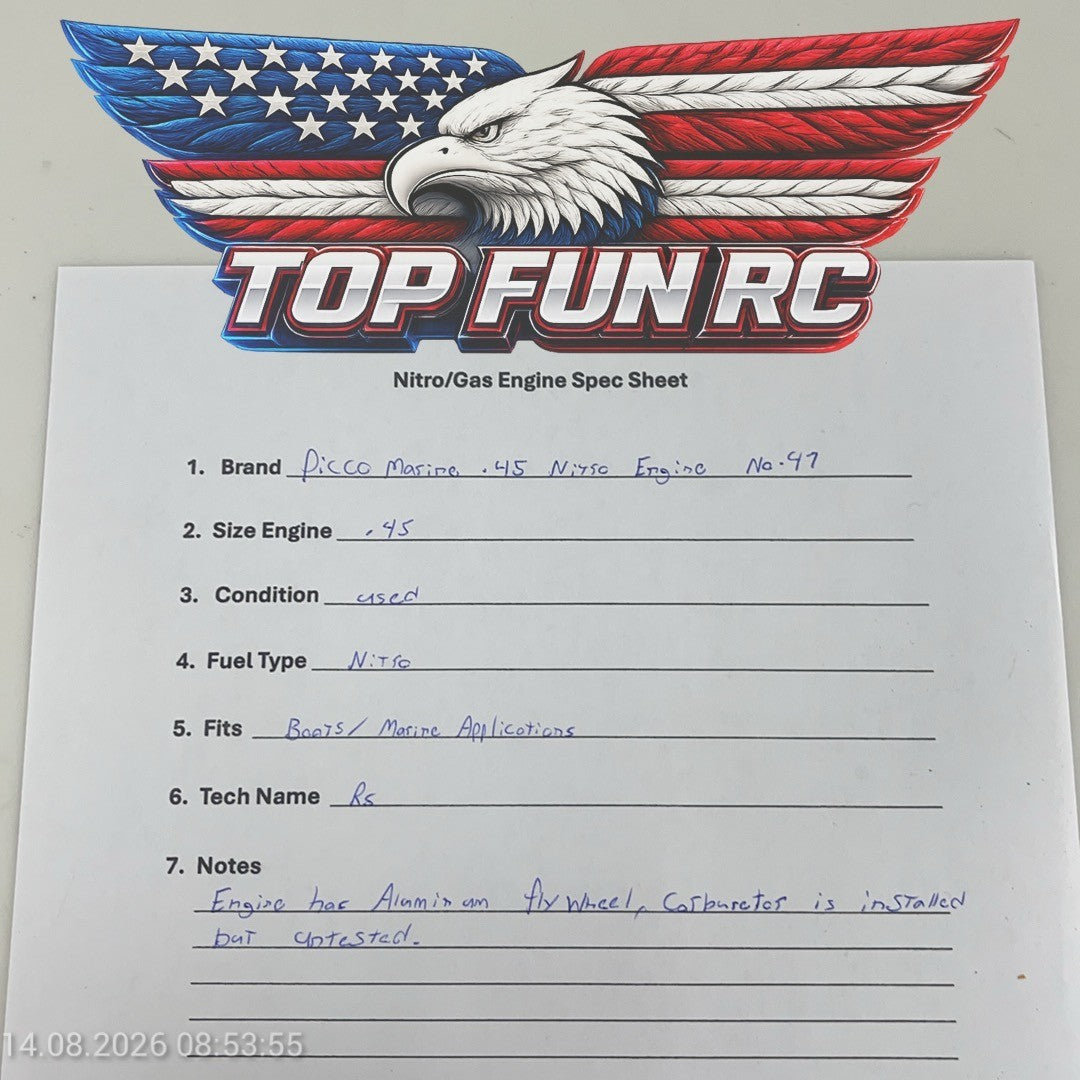 TOP FUN RC
Nitro/Gas Engine Spec Sheet
1. Brand Picco Marine .45 Nitro Engine No.47
2. Size Engine .45
3. Condition used
4. Fuel Type Nitro
5. Fits Boats/ Marine Applications
6. Tech Name Rs
7. Notes
Engine has Aluminum flywheel, Carburetor is installed
but untested.
14.08.2026 08:53:55